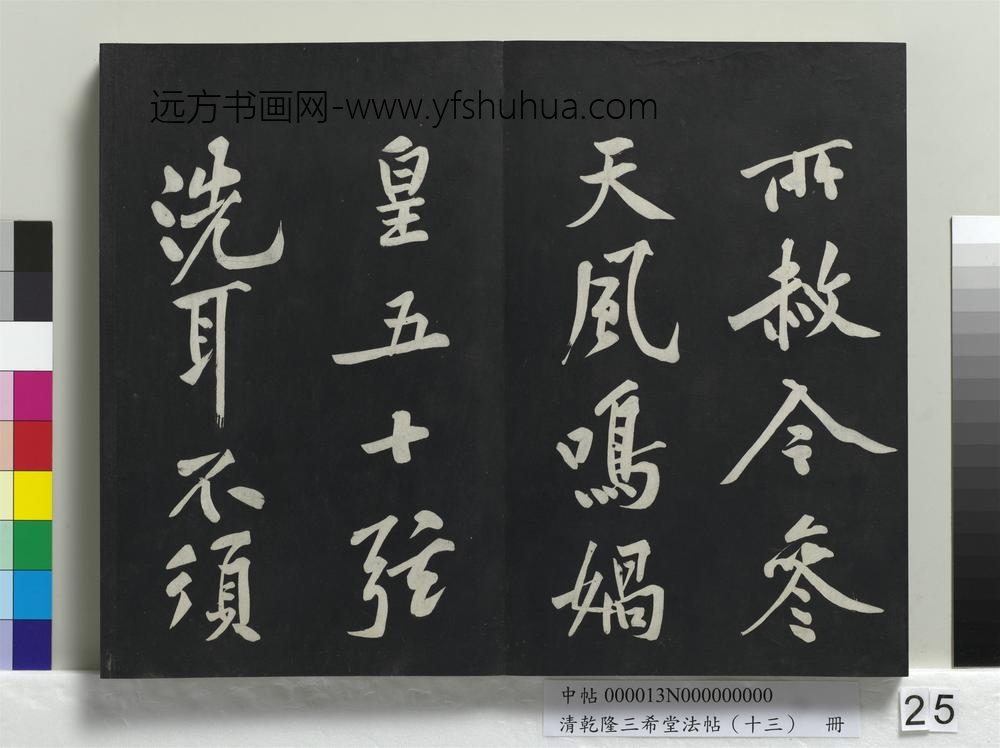 远方书画网-www.yfshuhua.com
所赦今參
天風鳴媧
皇五十弦
洗耳不須
中帖 000013N000000000
清乾隆三希堂法帖（十三） 冊
25